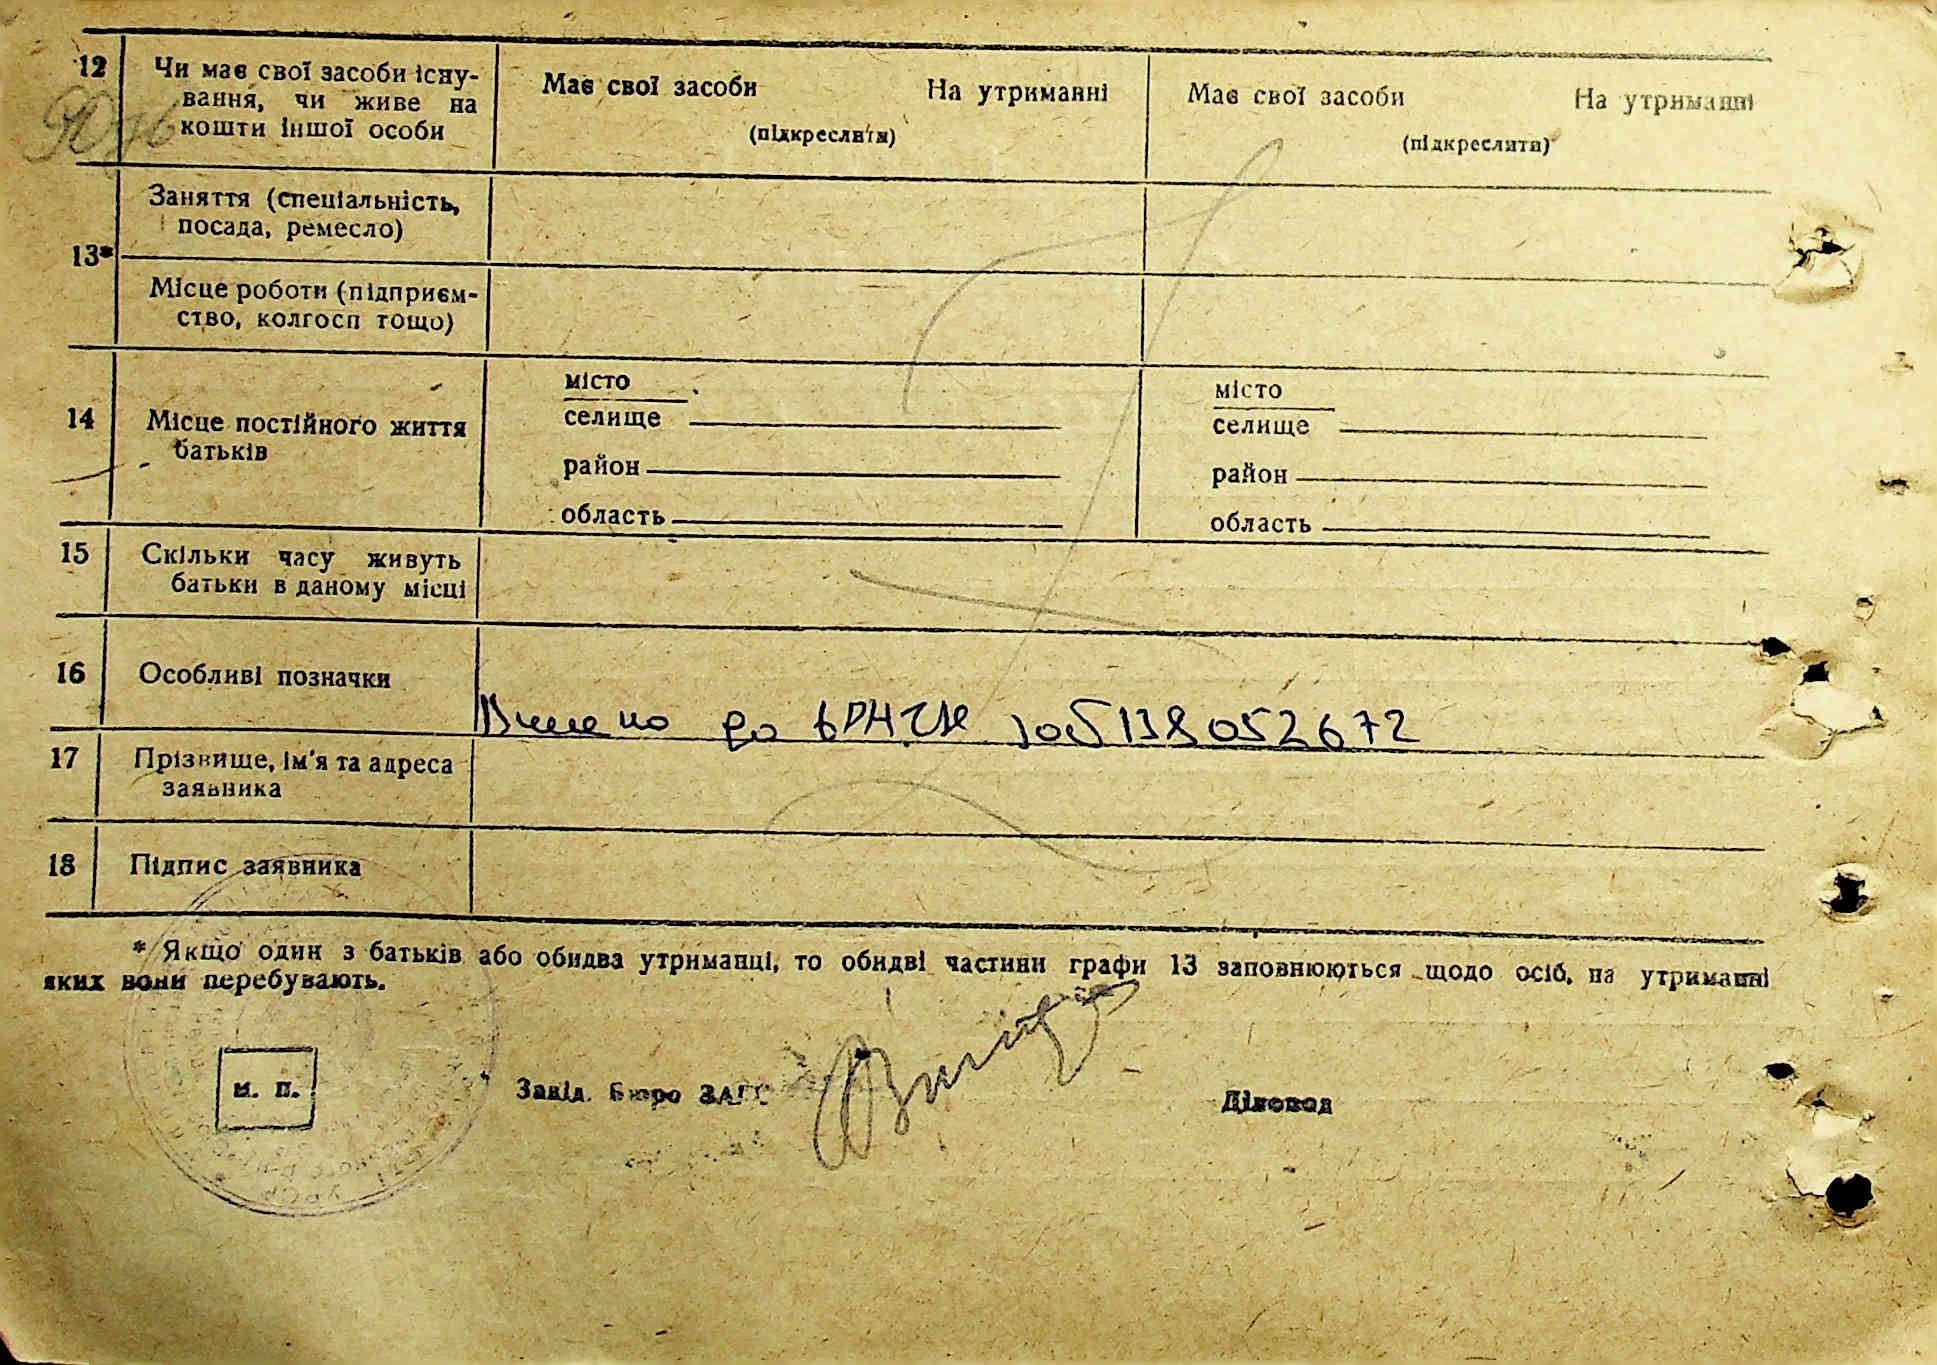 12 Чи має свої засоби існу-
вання, чи живе на
кошти іншої особи
Має свої засоби На утриманні
(підкреслити)
Має свої засоби На утриманні
(підкреслити)
13*
Заняття (спеціальність,
посада, ремесло)
Місце роботи (підприєм-
ство, колгосп тощо)
14 Місце постійного життя
батьків
місто
селище
район
область
місто
селище
район
область
15 Скільки часу живуть
батьки в даному місці
16 Особливі позначки
Внесено до
17 Прізвище, ім'я та адреса
заявника
18 Підпис заявника
* Якщо один з батьків або обидва утриманці, то обидві частини графи 13 заповнюються щодо осіб, на утриманні
яких вони перебувають.
м. п.
Завід. Бюро ЗАГС
Діловод